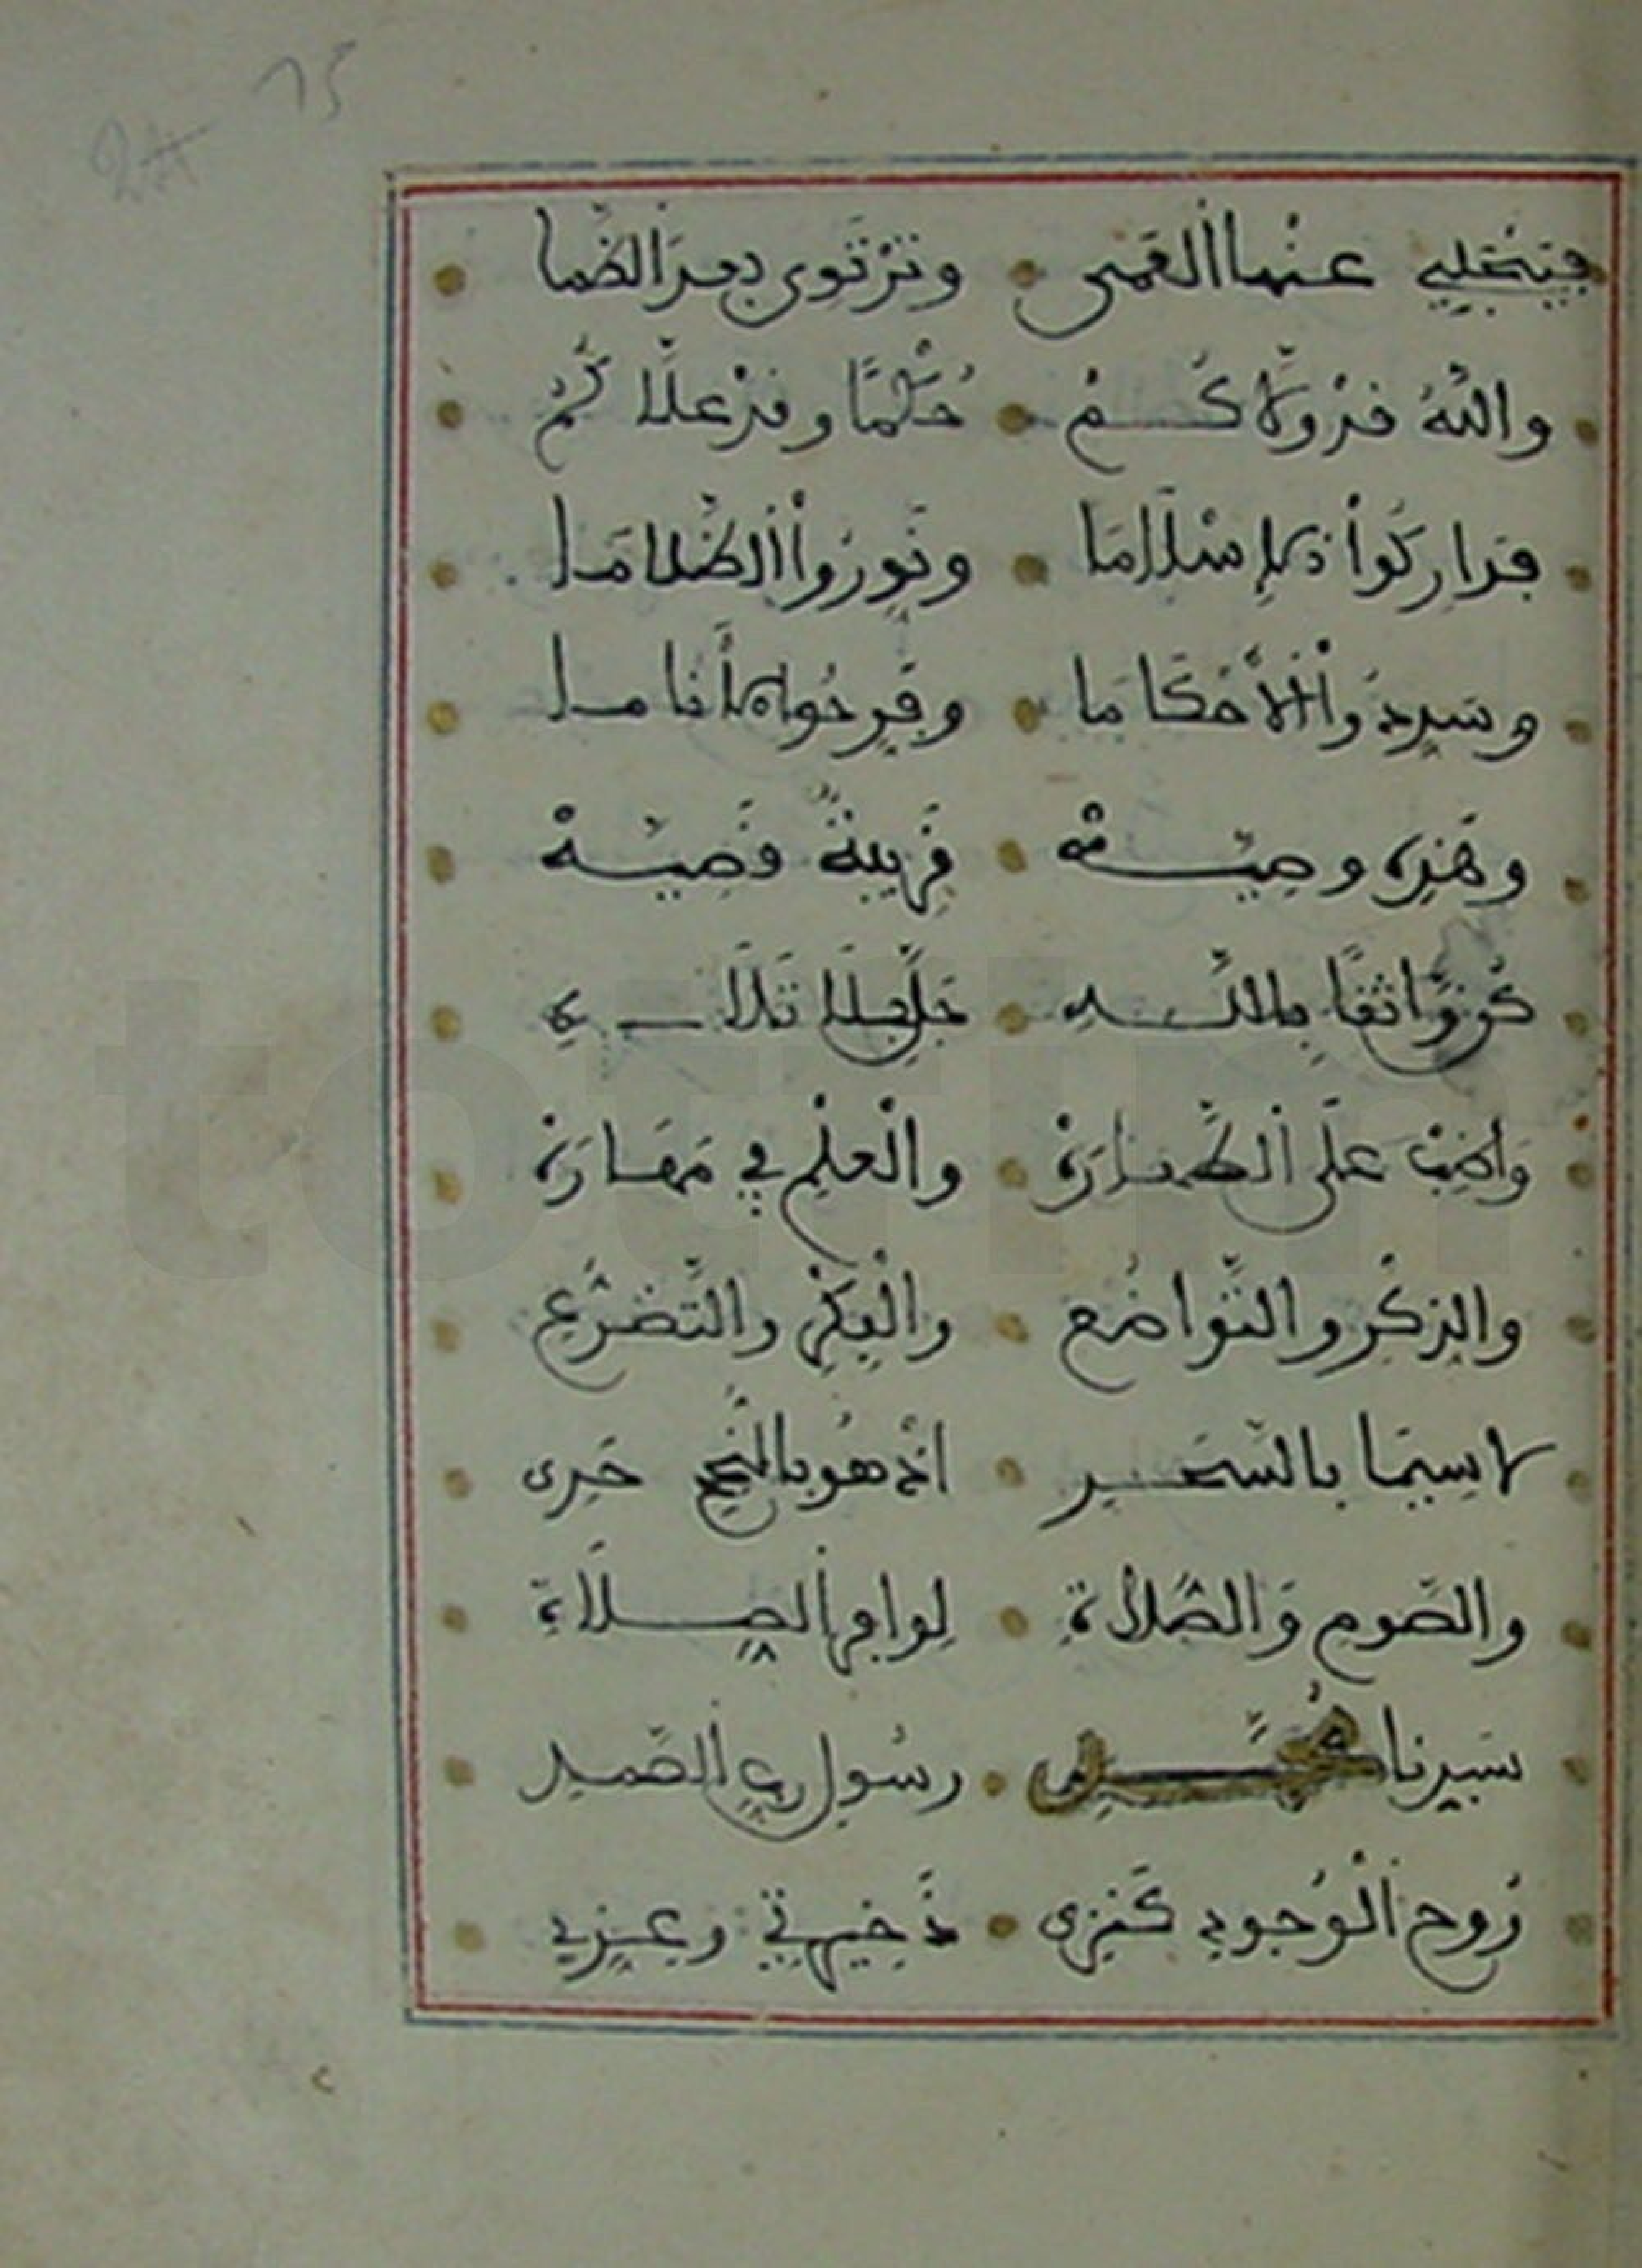 15
24
فتنجلي عنها العمى وترتوي بعد الظما
والله قد ولاكم حكما وقد علاكم
فداركوا الإسلاما ونوروا الظلاما
وسددوا الأحكاما وفرحوا الأناما
وهذه وصيه قريبة قصيه
كن واثقا بالله جليلا تلاه
واضب على الطهاره والعلم في مهاره
والذكر والتواضع والفكر والتضرع
لاسيما بالسحر اذ هو بالنجح حرى
والصوم والصلاة لوافر الصلاة
سيدنا محمد رسول رب الصمد
روح الوجود كنزى ذخيرتي وعزي